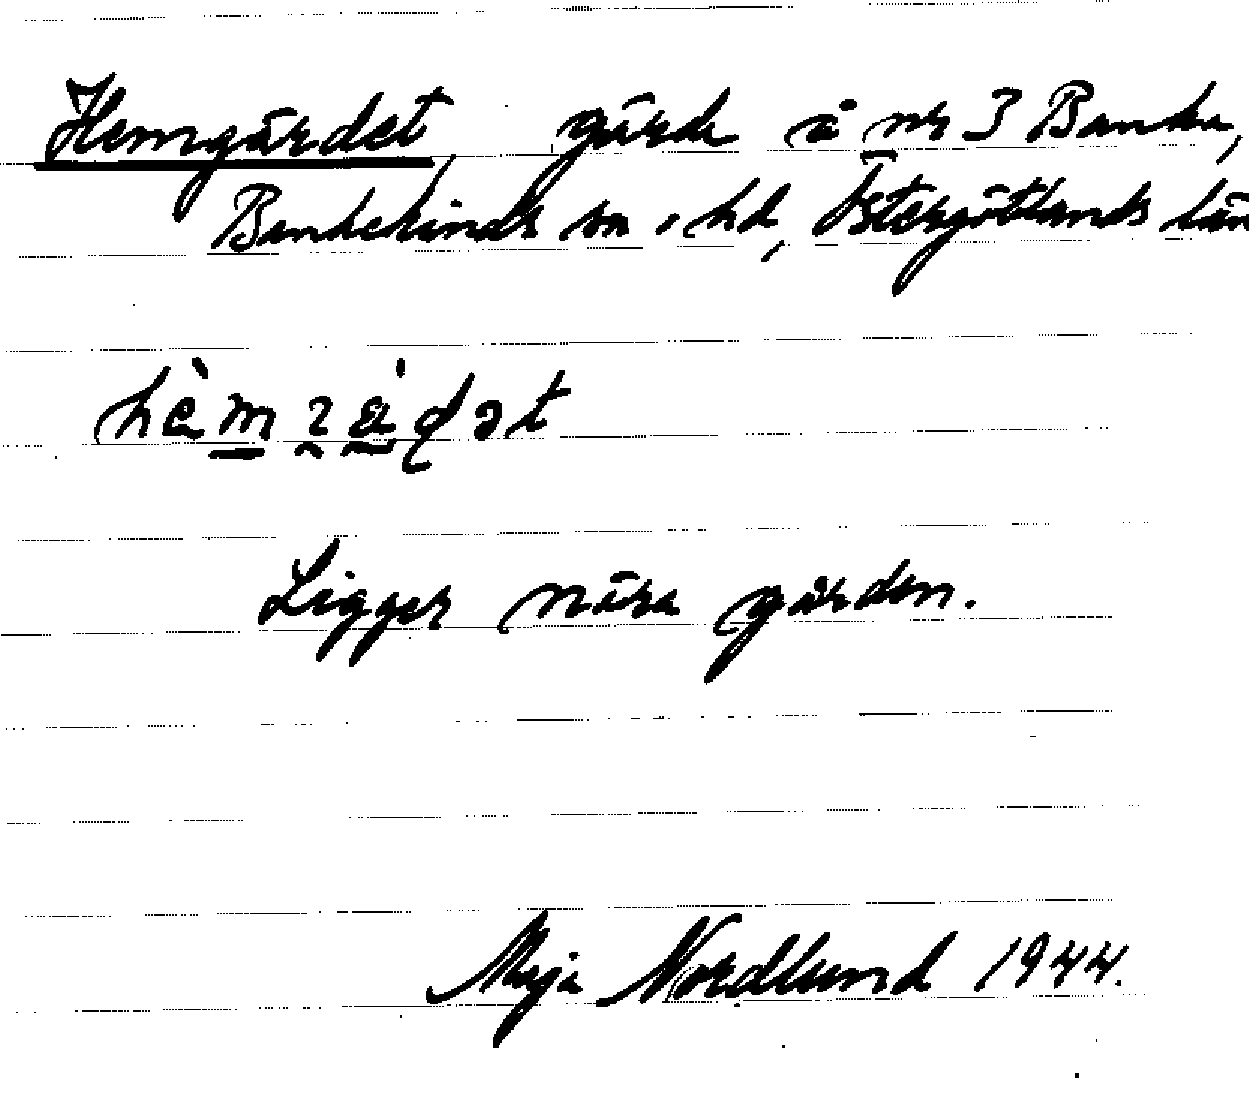 Hemgärdet, gärde å nr 3 Banka,
Bankekinds sn o. hd, Östergötlands län
Ligger nära gården.
Maja Nordlund 1944.